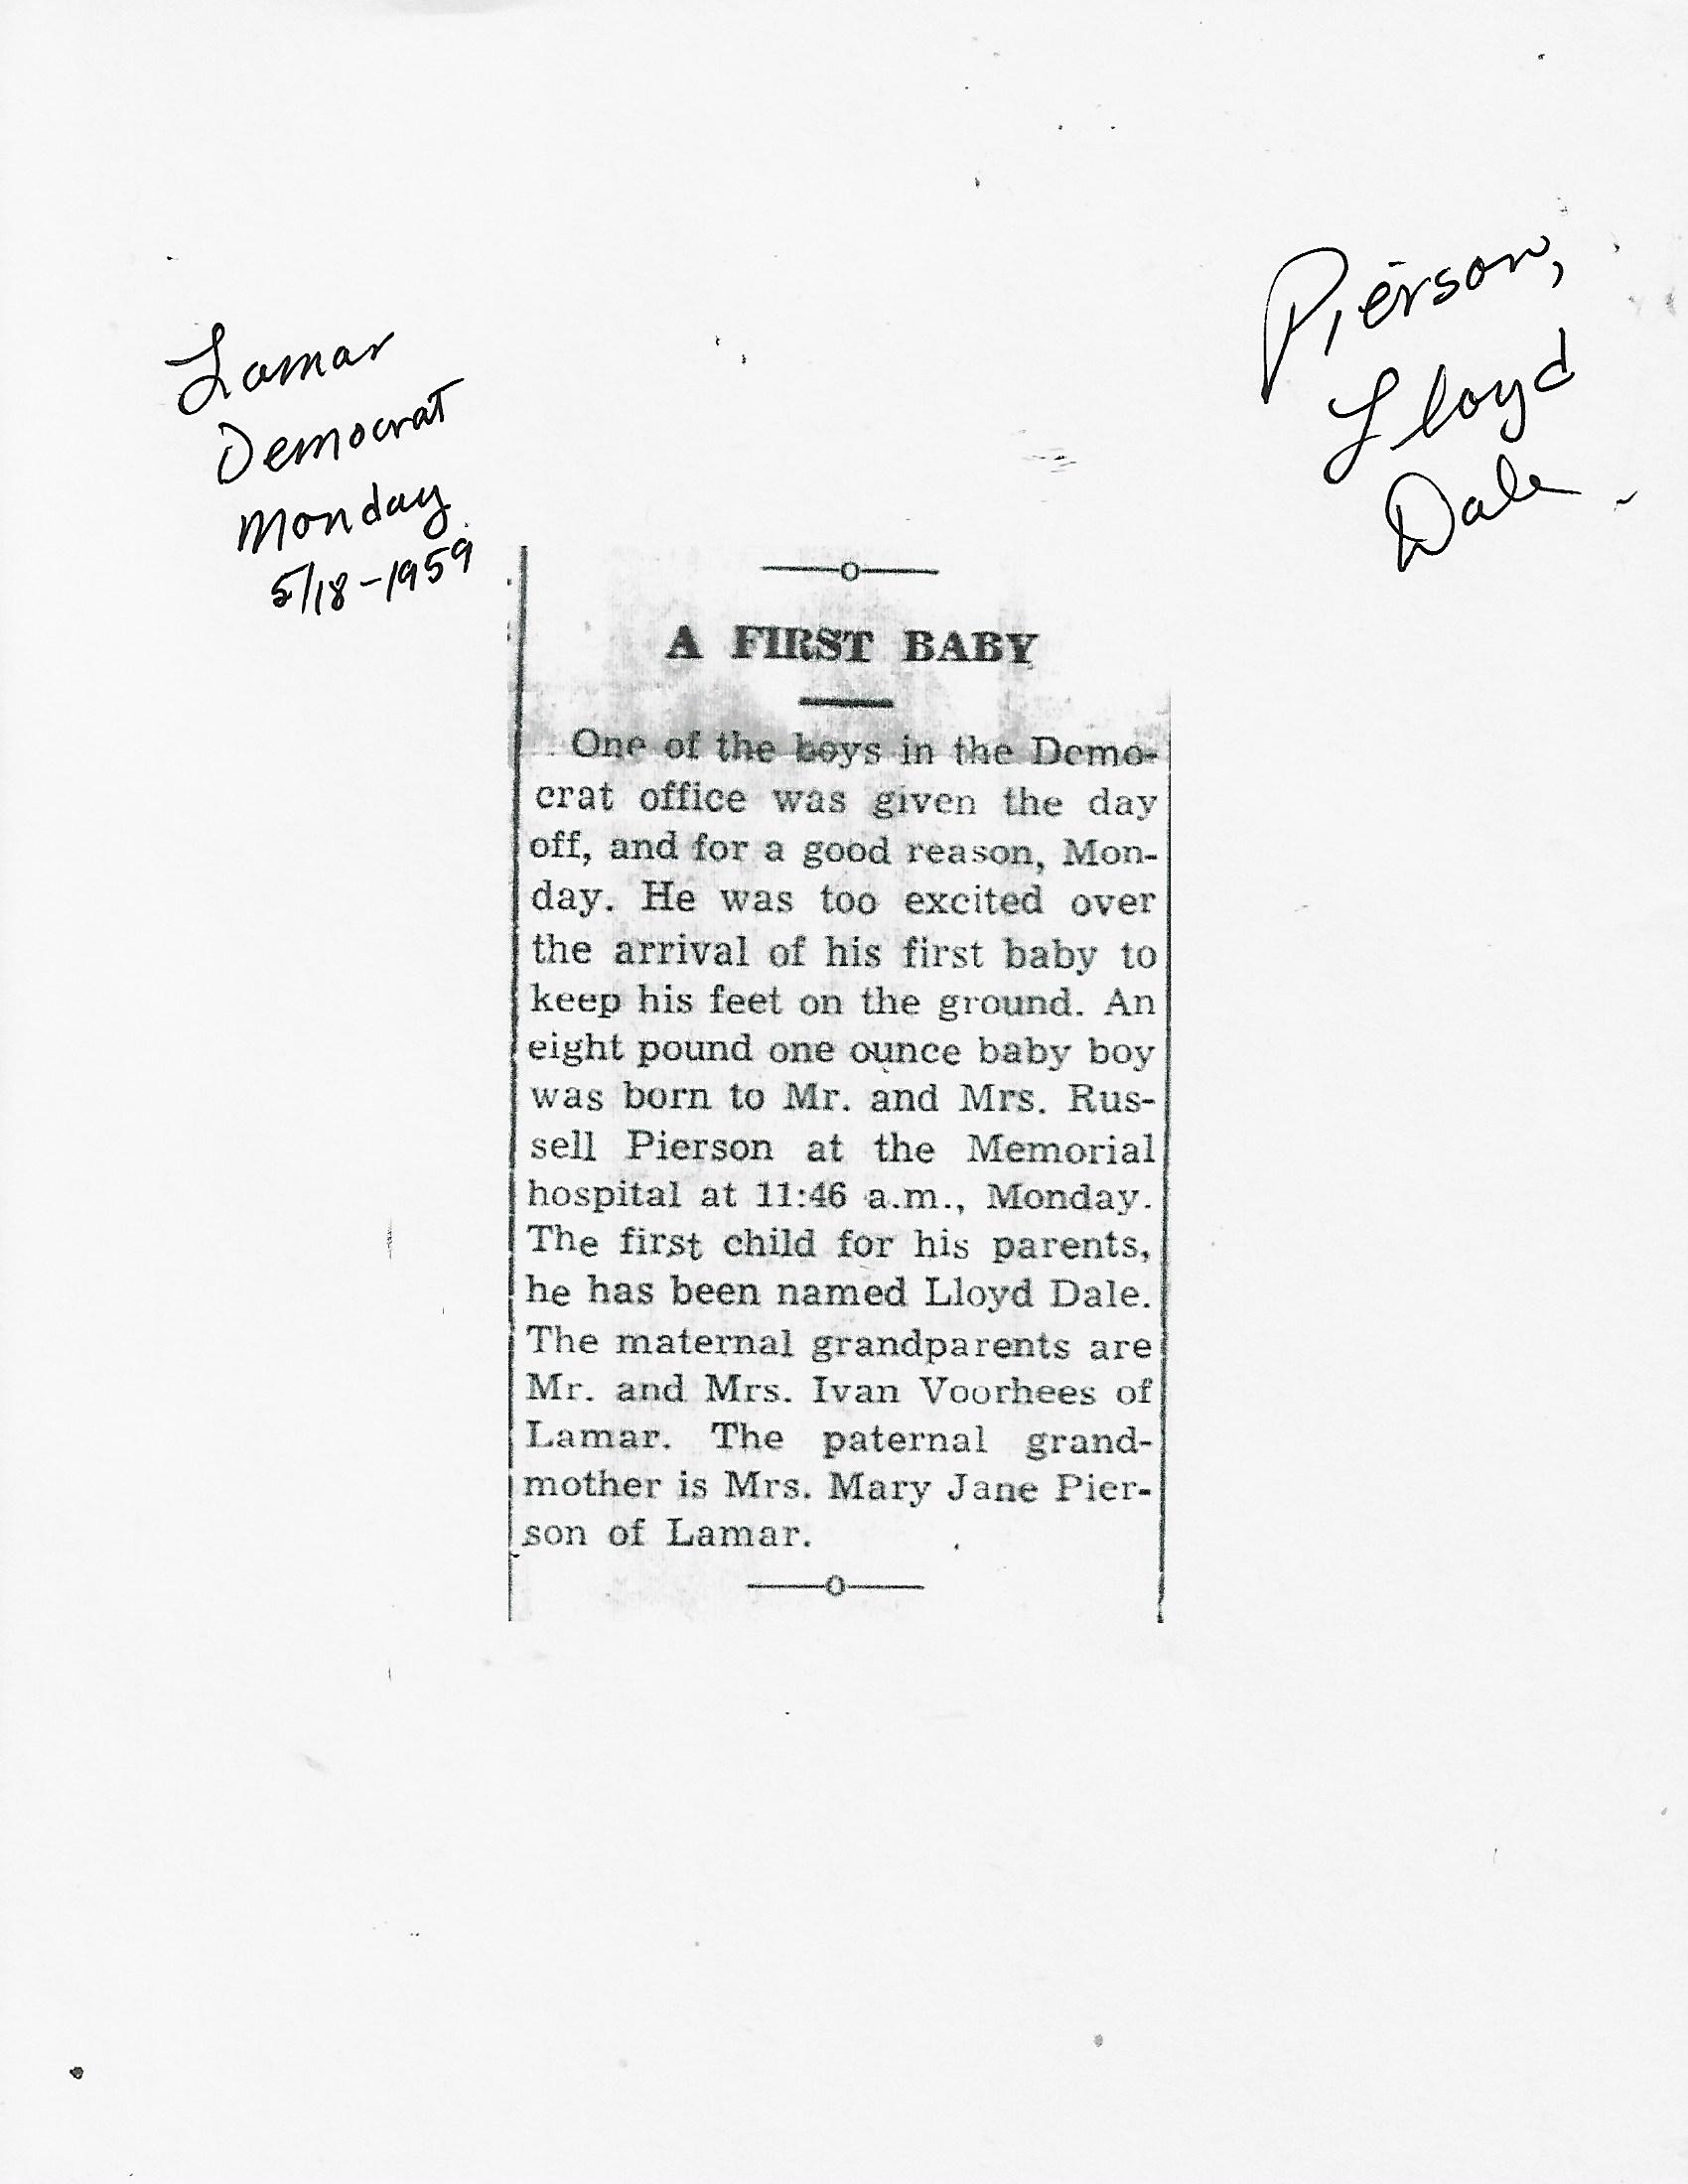 Lamar
Democrat
Monday
5/18-1959
Pierson,
Lloyd
Dale
A FIRST BABY
One of the boys in the Demo-
crat office was given the day
off, and for a good reason, Mon-
day. He was too excited over
the arrival of his first baby to
keep his feet on the ground. An
eight pound one ounce baby boy
was born to Mr. and Mrs. Rus-
sell Pierson at the Memorial
hospital at 11:46 a.m., Monday.
The first child for his parents,
he has been named Lloyd Dale.
The maternal grandparents are
Mr. and Mrs. Ivan Voorhees of
Lamar. The paternal grand-
mother is Mrs. Mary Jane Pier-
son of Lamar.